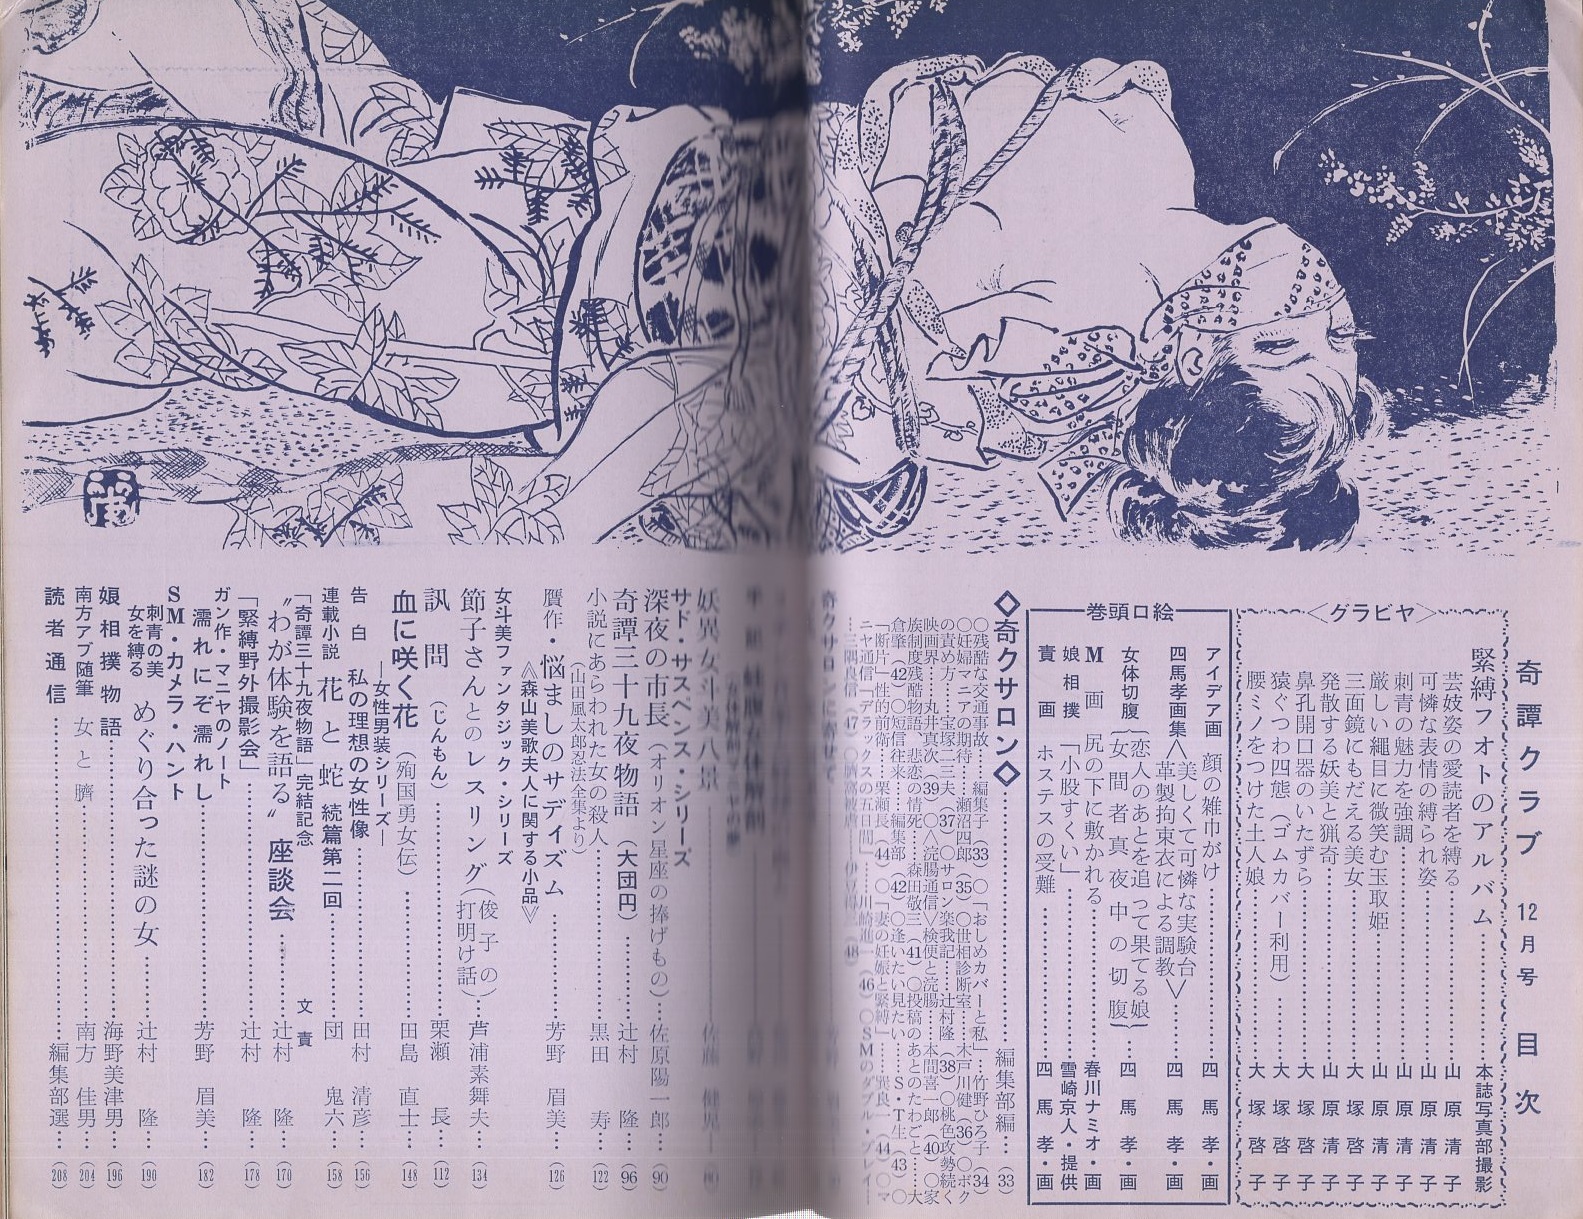 奇譚クラブ 12月号 目次
<グラビヤ>
緊縛フオトのアルバム……本誌写真部撮影
芸妓姿の愛読者を縛る……山原清子
可憐な表情の縛られ姿……山原清子
刺青の魅力を強調……山原清子
厳しい縄目に微笑む玉取姫……山原清子
三面鏡にもだえる美女……大塚啓子
発散する妖美と猟奇……山原清子
鼻孔開口器のいたずら……大塚啓子
猿ぐつわ四態(ゴムカバー利用)……大塚啓子
腰ミノをつけた土人娘……大塚啓子
巻頭口絵
アイデア画 顔の雑巾がけ……四馬孝・画
四馬孝画集<美しくて可憐な実験台 革製拘束衣による調教>……四馬孝・画
女体切腹{恋人のあとを追って果てる娘 女間者真夜中の切腹}……四馬孝・画
M画 尻の下に敷かれる……春川ナミオ・画
娘相撲 「小股すくい」……雪崎京人・提供
責画 ホステスの受難……四馬孝・画
◇奇クサロン◇……編集部編…(33)
○残酷な交通事故…編集子(33)○「おしめカバーと私」…竹野ひろ子(34)
○妊婦マニアの期待…瀬沼四郎(35)○世相診断室…木戸川健(36)○ボク
の責め方…宝塚二三夫(37)○サロン楽我記…辻村隆(38)○桃色攻勢続く
映画界…丸井真次(39)○<浣腸通信>検便と浣腸…本間喜一郎(40)○家
族制度残酷物語、悲恋の情死…森田敬三(41)○投稿のあとのたわごと…大
倉肇(42)○短信往来…編集部(42)○逢いたい見たい…S・T生(43)○
「断片」性的前衛…栗瀬長(44)○「妻の妊娠と緊縛」…巽良一(44)○マ
ニヤ通信「デラックスの五日間」…川崎進一(46)○SMのダブル・プレイ
…三隅良信(47)
奇クサロンに寄せて
妖異女斗美八景……佐藤健児…(80)
サド・サスペンス・シリーズ
深夜の市長(オリオン星座の捧げもの)…佐原陽一郎…(90)
奇譚三十九夜物語(大団円)……辻村隆…(96)
小説にあらわれた女の殺人……黒田寿…(122)
(山田風太郎忍法全集より)
贋作・悩ましのサデイズム……芳野眉美…(126)
《森山美歌夫人に関する小品》
女斗美ファンタジック・シリーズ
節子さんとのレスリング(俊子の打明け話)…芦浦素舞夫…(134)
訊問(じんもん)……栗瀬長…(112)
血に咲く花(殉国勇女伝)……田島直士…(148)
―女性男装シリーズ―
告白 私の理想の女性像……田村清彦…(156)
連載小説 花と蛇 続篇第二回……団鬼六…(158)
「奇譚三十九夜物語」完結記念
〝わが体験を語る〟座談会……文責 辻村隆…(170)
「緊縛野外撮影会」……辻村隆…(178)
ガン作・マニヤのノート
濡れにぞ濡れし……芳野眉美…(182)
SM・カメラ・ハント
刺青の美女を縛る めぐり合った謎の女……辻村隆…(190)
娘相撲物語……海野美津男…(196)
南方アブ随筆 女と臍……南方佳男…(204)
読者通信……編集部選…(208)